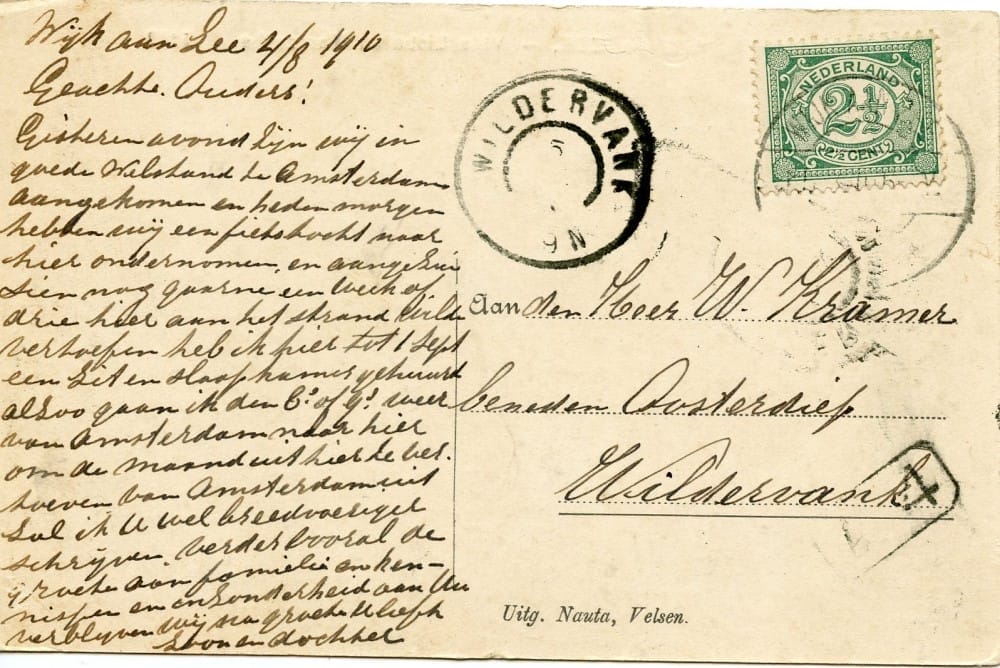 Wijk aan Zee 4/8 1910
Geachte Ouders!
Gisteren avond zijn wij in
goede Welstand te Amsterdam
aangekomen en heden morgen
hebben wij een fietstocht naar
hier ondernomen, en aangezien
Sien nog gaarne een week of
drie hier aan het strand wilde
vertoefen heb ik hier tot 1 Sept
een zit en slaapkamer gehuurd
alzoo gaan ik den 8s of 9s weer
van Amsterdam naar hier
om de maand uit hier te ver-
toeven van Amsterdam uit
Zal ik U wel breedvoeriger
schrijven. verder vooral de
groete aan familie en ken-
nissen en in zonderheid aan Uw
verblyven wij na groete U liefh
Zoon en dochter
WILDERVANK
9 N
NEDERLAND
2½
2½ CENT
Aan den Heer W. Kramer
beneden Oosterdiep
Wildervank
4
Uitg. Nauta, Velsen.